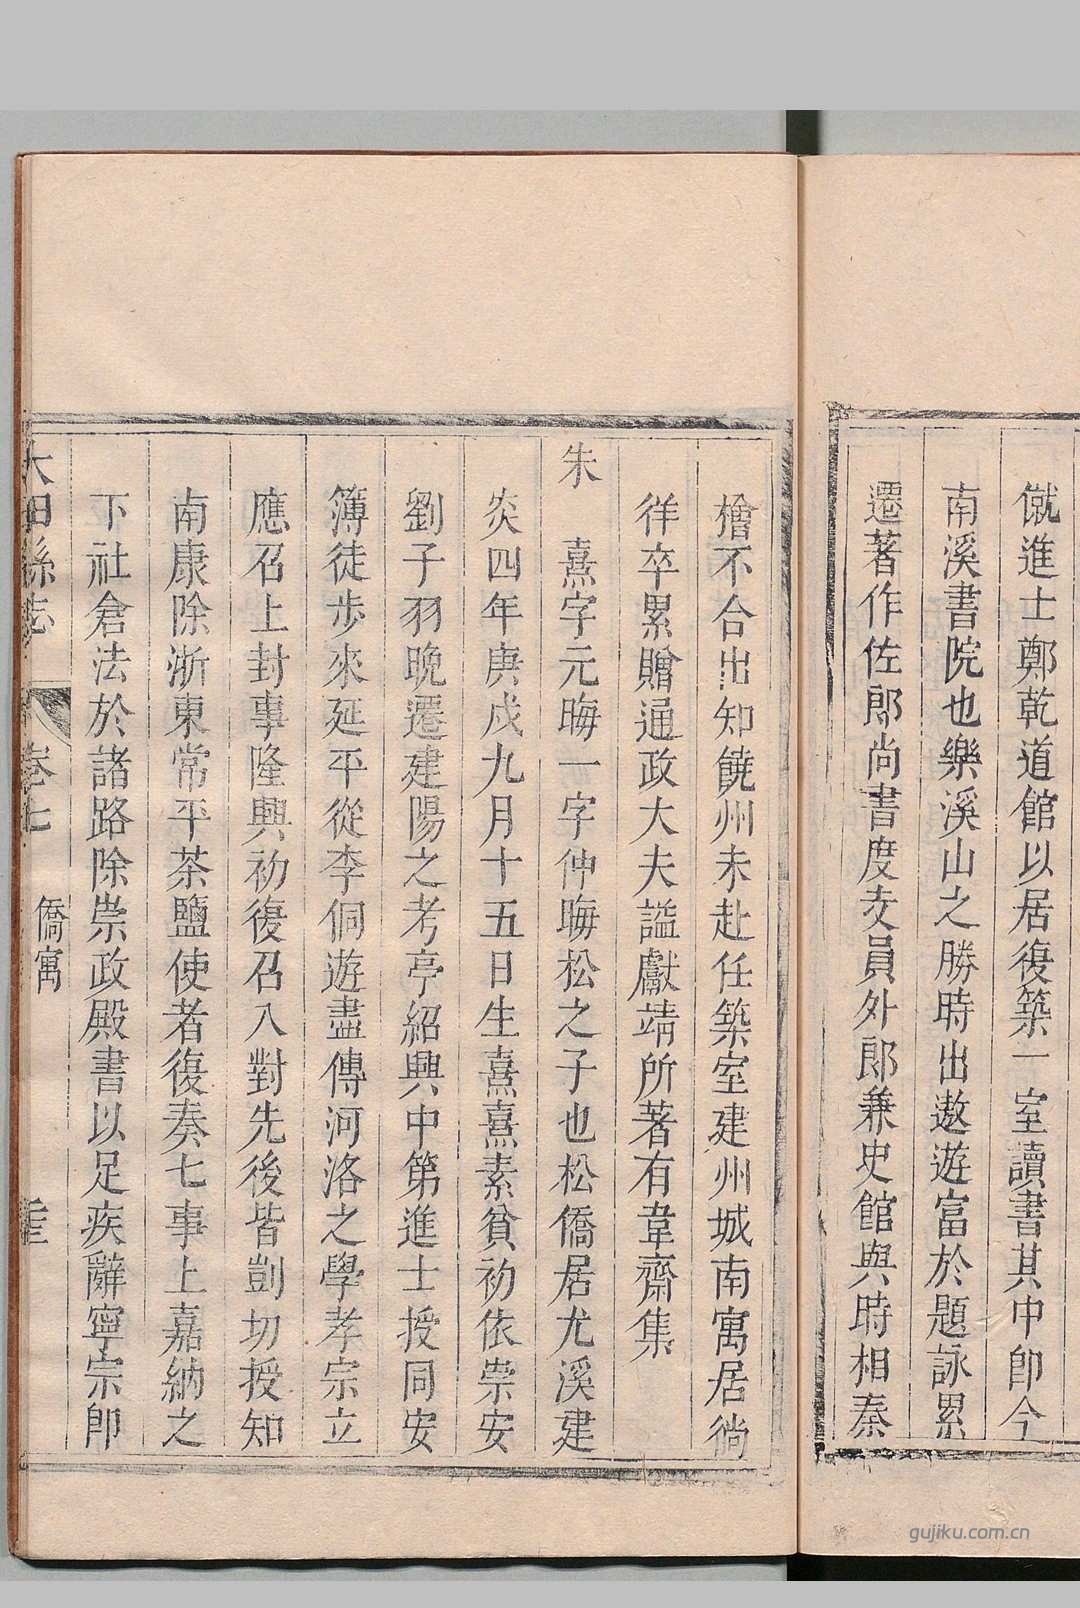 僦進士鄭乾道館以居復築一室讀書其中即今
南溪書院也樂溪山之勝時出遨遊富於題詠累
遷著作佐郎尚書度支員外郎兼史館與時相秦
檜不合出知饒州未赴任築室建州城南寓居徜
徉卒累贈通政大夫諡獻靖所著有韋齋集
朱熹字元晦一字仲晦松之子也松僑居尤溪建
炎四年庚戌九月十五日生熹熹素貧初依崇安
劉子羽晚遷建陽之考亭紹興中第進士授同安
簿徒步來延平從李侗遊盡傳河洛之學孝宗立
應召上封事隆興初復召入對先後皆剴切授知
南康除浙東常平茶鹽使者復奏七事上嘉納之
下社倉法於諸路除崇政殿書以足疾辭寧宗即
大田縣志 卷七 僑寓
gujiku.com.cn